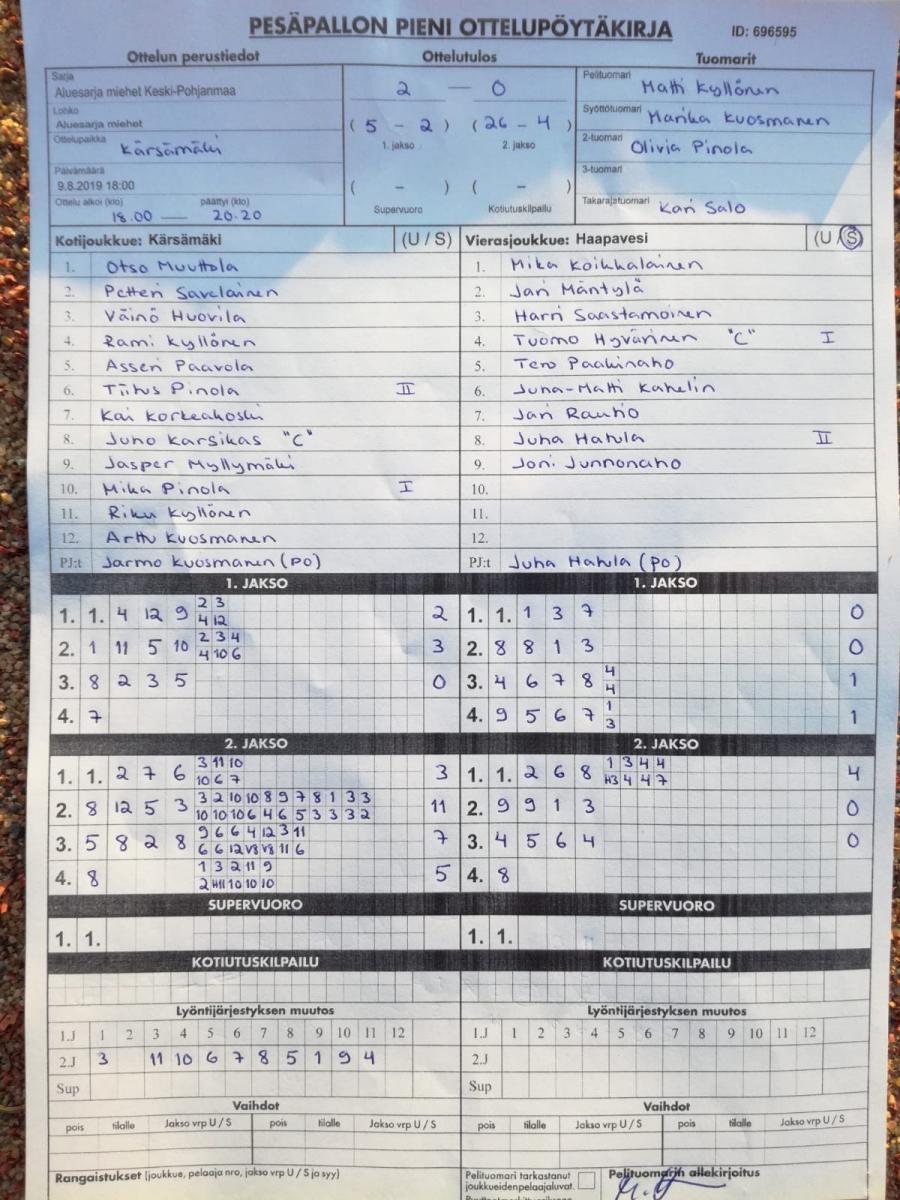 PESÄPALLON PIENI OTTELUPÖYTÄKIRJA ID: 696595
Ottelun perustiedot Ottelutulos Tuomarit
Sarja
Aluesarja miehet Keski-Pohjanmaa
Lohko
Aluesarja miehet
Ottelupaikka Kärsämäki
Päivämäärä
9.8.2019 18:00
Ottelu alkoi (klo) päättyi (klo)
18.00 — 20.20
2 — 0
( 5 - 2 ) ( 26 - 4 )
1. jakso 2. jakso
( - ) ( - )
Supervuoro Kotiutuskilpailu
Pelituomari Matti Kyllönen
Syöttötuomari Marika Kuosmanen
2-tuomari Olivia Pinola
3-tuomari
Takarajatuomari Kari Salo
Kotijoukkue: Kärsämäki (U / S)
1. Otso Muuttola
2. Petteri Savelainen
3. Väinö Huovila
4. Rami Kyllönen
5. Asseri Paavola
6. Tiitus Pinola II
7. Kai Korkeakoski
8. Juho Karsikas "C"
9. Jasper Myllymäki
10. Mika Pinola I
11. Riku Kyllönen
12. Arttu Kuosmanen
PJ:t Jarmo Kuosmanen (PO)
Vierasjoukkue: Haapavesi (U / S)
1. Mika Koikkalainen
2. Jari Mäntylä
3. Harri Saastamoinen
4. Tuomo Hyvärinen "C" I
5. Tero Paakinaho
6. Juha-Matti Kahelin
7. Jari Rauhio
8. Juha Hahula II
9. Joni Junnonaho
10.
11.
12.
PJ:t Juha Hahula (PO)
1. JAKSO
1. 1. 4 12 9 2 3 2
4 12
2. 1 11 5 10 2 3 4 3
4 10 6
3. 8 2 3 5 0
4. 7
1. JAKSO
1. 1. 1 3 7 0
2. 8 8 1 3 0
3. 4 6 7 8 4 1
4
4. 9 5 6 7 1 1
3
2. JAKSO
1. 1. 2 7 6 3 11 10 3
10 6 7
2. 8 12 5 3 3 2 10 10 8 9 7 8 1 3 3 11
10 10 10 6 4 6 5 3 3 3 2
3. 5 8 2 8 9 6 6 4 12 3 11 7
6 6 12 V8 V8 11 6
4. 8 1 3 2 11 9 5
2 H11 10 10 10
2. JAKSO
1. 1. 2 6 8 1 3 4 4 4
H3 4 4 7
2. 9 9 1 3 0
3. 4 5 6 4 0
4. 8
SUPERVUORO
1. 1.
SUPERVUORO
1. 1.
KOTIUTUSKILPAILU
KOTIUTUSKILPAILU
Lyöntijärjestyksen muutos
1.J 1 2 3 4 5 6 7 8 9 10 11 12
2.J 3 11 10 6 7 8 5 1 9 4
Sup
Lyöntijärjestyksen muutos
1.J 1 2 3 4 5 6 7 8 9 10 11 12
2.J
Sup
Vaihdot
pois tilalle Jakso vrp U / S pois tilalle Jakso vrp U / S
Vaihdot
pois tilalle Jakso vrp U / S pois tilalle Jakso vrp U / S
Rangaistukset (joukkue, pelaaja nro, jakso vrp U / S ja syy)
Pelituomari tarkastanut
joukkueidenpelaajaluvat.
Pelituomarin allekirjoitus